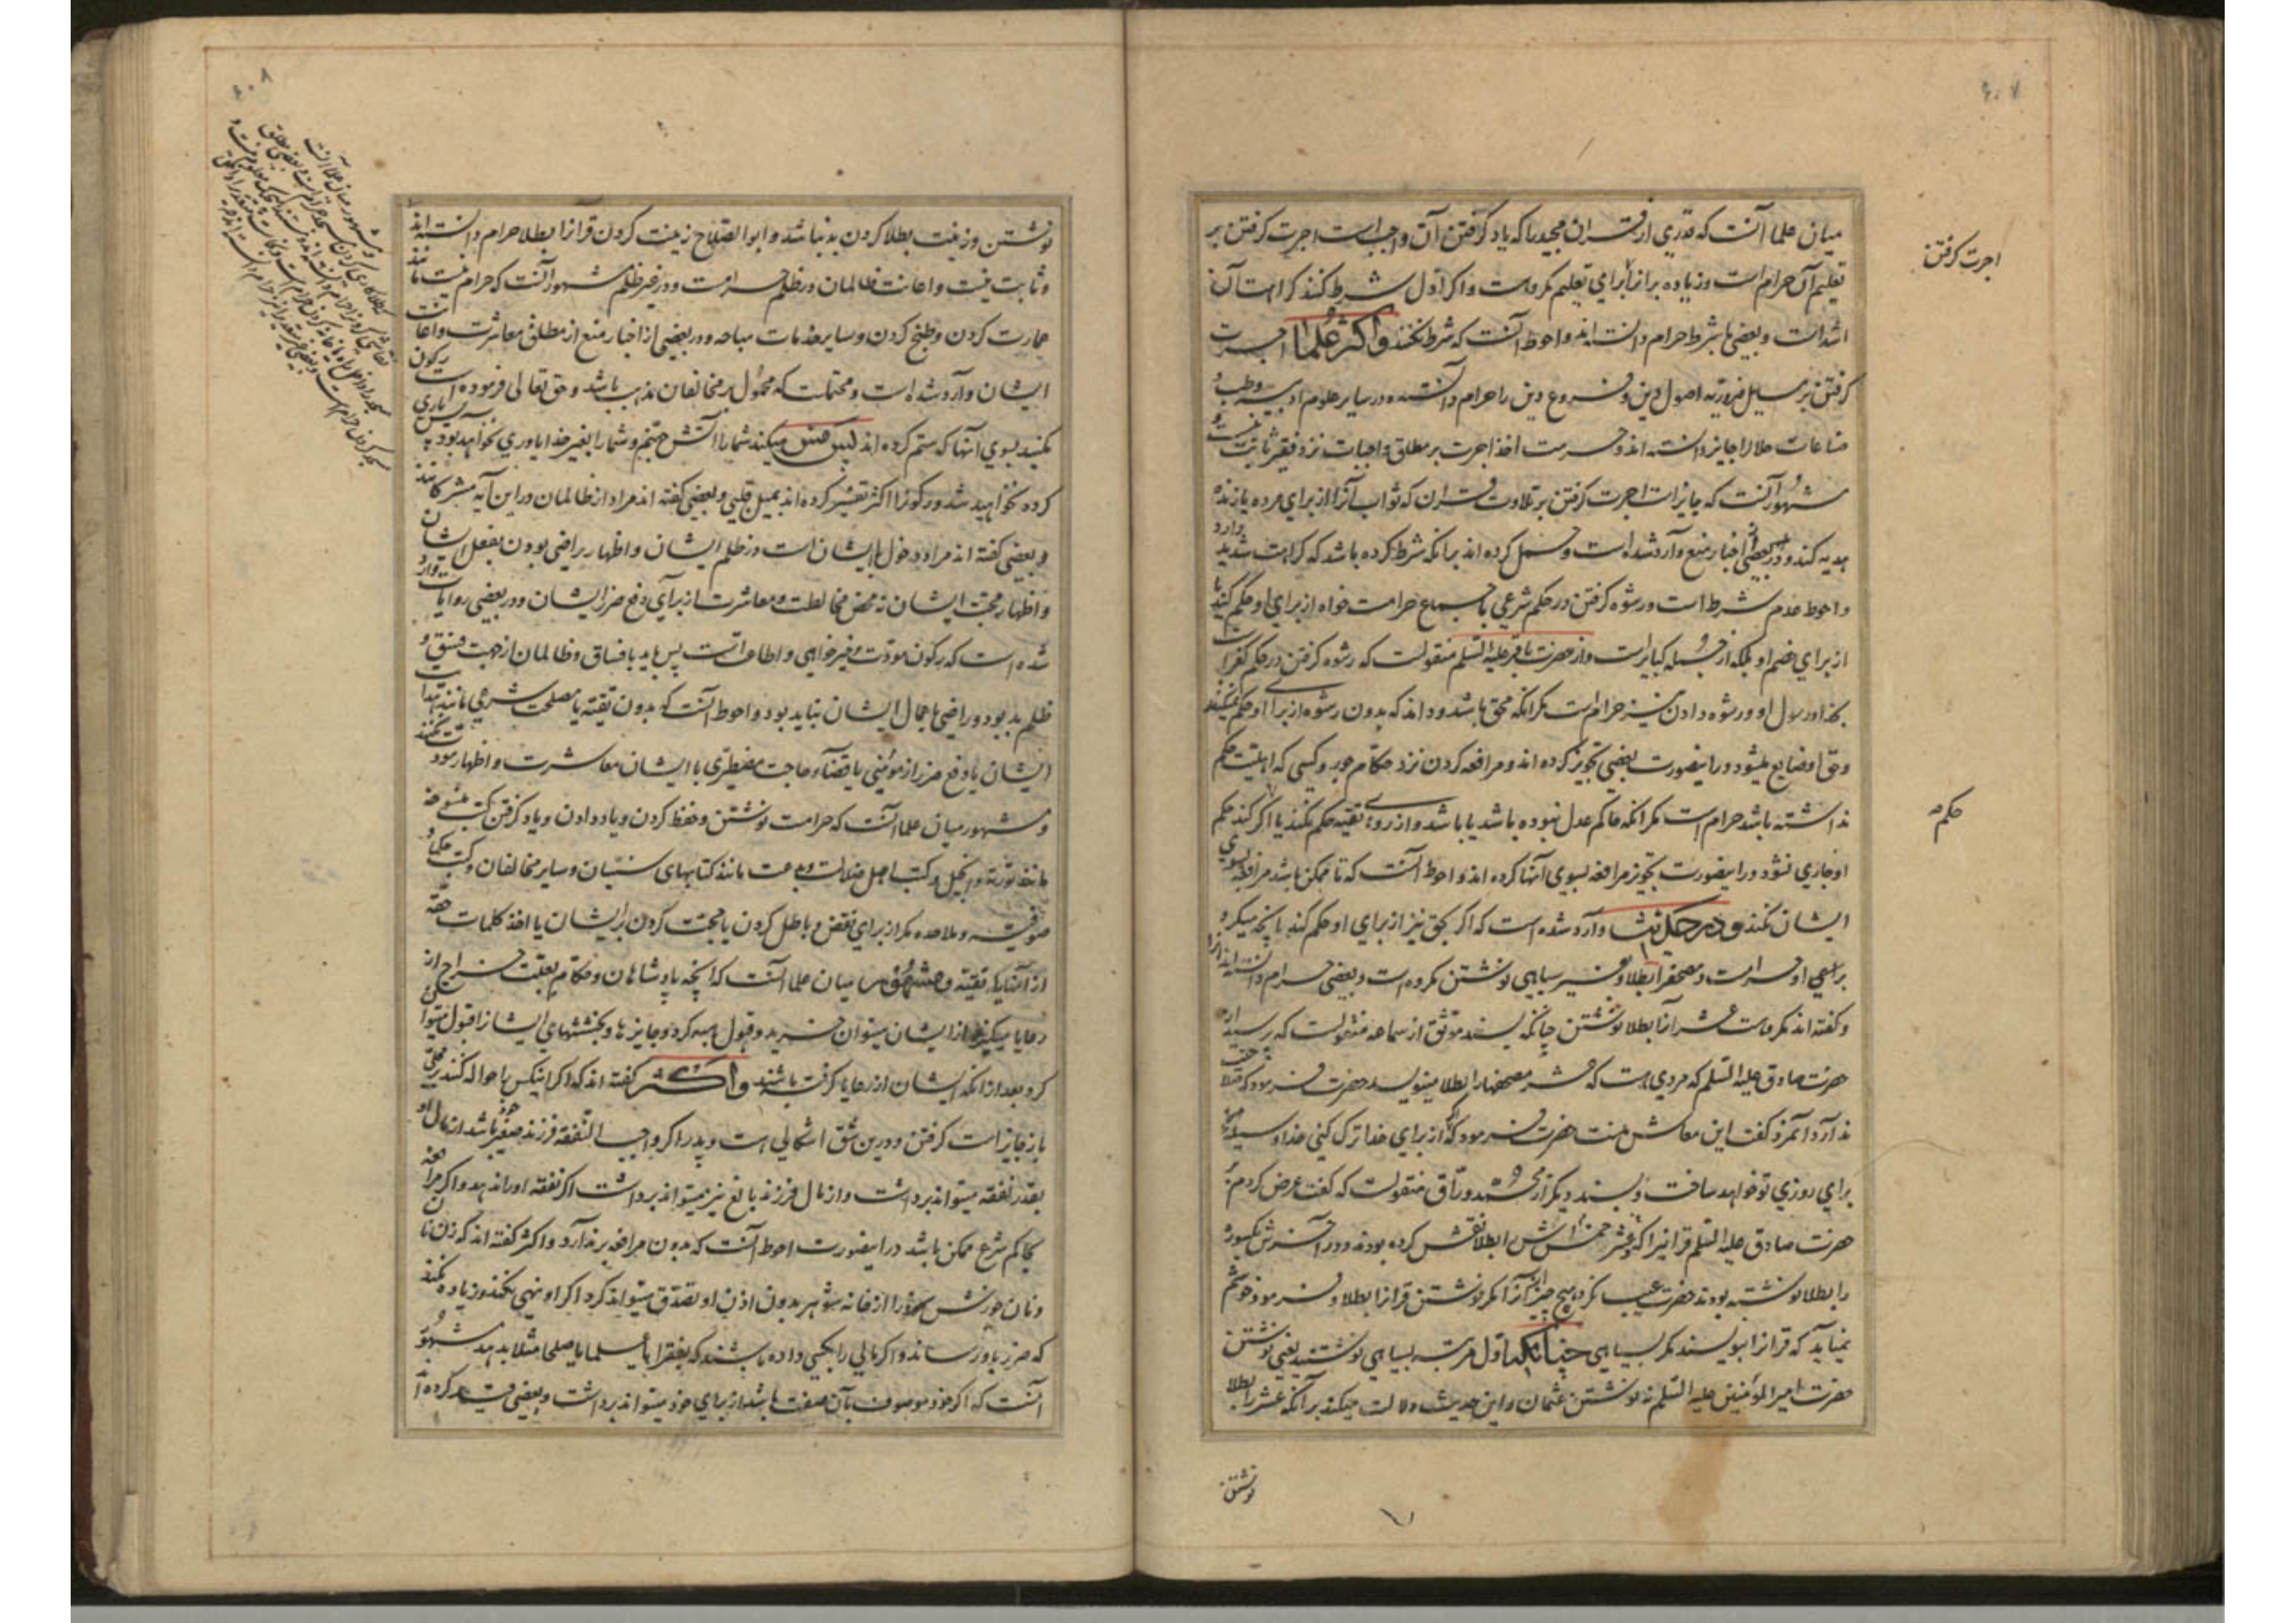 ۶۰۷
میان علما آنست که قدری از قران مجید را که یاد گرفتن آن واجب است اجرت گرفتن بر
تعلیم آن حرام است وزیاده بر آن از برای تعلیم مکروهست واکر اول شرط کنند کراهت آن
اشد است و بعضی با شرط حرام دانسته اند واحوط آنست که شرط نکنند واکثر علما اجرت
گرفتن بر مسایل ضروریه اصول دین و فروع دین را حرام دانسته و در سایر علوم ادبیه و طب و
صناعات حلال را جایز دانسته اند و حرمت اخذ اجرت بر مطلق واجبات نزد فقیر ثابت نیست و
مشهور آنست که جایز است اجرت گرفتن بر تلاوت قران که ثواب آنرا از برای مرده یا زنده
هدیه کند و در بعضی اخبار منع وارد شده است و حمل کرده اند بر انکه شرط کرده باشد که کراهت شدید دارد
واحوط عدم شرط است ورشوه گرفتن در حکم شرعی باجماع حرامست خواه از برای او حکم کند یا
از برای خصم او بلکه از جمله کبایر است واز حضرت باقر علیه السلم منقولست که رشوه گرفتن در حکم کفر است
بخدا ورسول او ورشوه دادن نیز حرام است مکر انکه محق باشد و داند که بدون رشوه از برای او حکم نمیکنند
وحق او ضایع میشود در اینصورت بعضی تجویز کرده اند و مرافعه کردن نزد حکام جور و کسی که اهلیت حکم
نداشته باشد حرام است مکر انکه حاکم عدل نبوده باشد یا باشد واز روی تقیه حکم نکند یا اکر کند حکم
او جاری نشود در اینصورت تجویز مرافعه بسوی آنها کرده اند واحوط آنست که تا ممکن باشد مرافعه بسوی
ایشان نکند و در حدیث وارد شده است که اکر بحق نیز از برای او حکم کند یا نچه میکیرد
برای او حرامست و مصحف را بطلا و غیر سیاهی نوشتن مکروه است و بعضی حرام دانسته اند آنرا
وگفته اند مکروهست عشر آنرا بطلا نوشتن چنانکه بسند موثق از سماعه منقولست که رسید از
حضرت صادق علیه السلم که مردی هست که عشر مصحفها را بطلا مینویسد حضرت فرمود که صلاحیت
ندارد آنمرد گفت این معاش منست حضرت فرمود که اکر از برای خدا ترک کنی خدا وسیله
برای روزی تو خواهد ساخت و بسند دیکر از محمد وراق منقولست که گفت عرض کردم بر
حضرت صادق علیه السلم قرانیرا که عشر خمس اش را بطلا نقش کرده بودند و در آخرش یکسوره
را بطلا نوشته بودند حضرت عیب نکرد هیچ چیز آنرا مکر نوشتن قرانرا بطلا و فرمود خوشم
نمیآید که قرانرا بنویسند مکر بسیاهی چنانکه اول مرتبه بسیاهی نوشتند یعنی نوشتن
حضرت امیر المؤمنین علیه السلم نه نوشتن عثمان و این حدیث دلالت میکند بر آنکه عشر را بطلا
نوشتن
اجرت گرفتن
حکم
۶۰۸
نوشتن وزینت بطلا کردن بد نباشد و ابو الصلاح زینت کردن قرانرا بطلا حرام دانسته اند
وثابت نیست واعانت ظالمان در ظلم حرامست و در غیر ظلم مشهور آنست که حرام نیست مانند
عمارت کردن و طبخ کردن و سایر خدمات مباحه و در بعضی از اخبار منع از مطلق معاشرت واعانت
ایشان وارد شده است و محتملست که محمول بر مخالفان مذهب باشد و حق تعالی فرموده است رکون
مکنید بسوی آنها که ستم کرده اند پس مس میکند شما را آتش جهنم و شما را بغیر خدا یاوری نخواهد بود پس یاری
کرده نخواهید شد و رکون را اکثر تفسیر کرده اند بمیل قلبی و بعضی گفته اند مراد از ظالمان در این آیه مشرکانند
و بعضی گفته اند مراد دخول با ایشان است در ظلم ایشان و اظهار راضی بودن بفعل ایشان
و اظهار محبت ایشان نه محض مخالطت و معاشرت از برای دفع ضرر ایشان و در بعضی روایات وارد
شده است که رکون مودت و خیرخواهی و اطاعت است پس باید با فساق و ظالمان از جهت فسق و
ظلم بد بود و راضی باعمال ایشان نباید بود و احوط آنست که بدون تقیه یا مصلحت شرعی مانند هدایت
ایشان یا دفع ضرر از مؤمنی یا قضاء حاجت مضطری با ایشان معاشرت و اظهار مودت نکنند
و مشهور میان علما آنست که حرامست نوشتن و حفظ کردن و یاد دادن و یاد گرفتن کتب منسوخه
مانند توریة و انجیل و کتب اهل ضلالت و بدعت مانند کتابهای سنیان و سایر مخالفان و کتب حکما و
صوفیه و ملاحده مکر از برای نقض و باطل کردن یا حجت کردن بر ایشان یا اخذ کلمات حقه
از آنها یا تقیه و مشهور میان علما آنست که آنچه پادشاهان و حکام بعلت خراج از
رعایا میکیرند از ایشان میتوان خرید و قبول هبه کرد و جایزها و بخششهای ایشانرا قبول میتوان
کرد بعد از انکه ایشان از رعایا گرفته باشند واکثر گفته اند که اکر اینکس را حواله کنند بر محلی
باز جایز است گرفتن و در این شق اشکالی هست و پدر اکر واجب النفقه فرزند صغیر باشد از مال او
بقدر نفقه میتواند برداشت و از مال فرزند بالغ نیز میتواند برداشت اکر نفقه او را ندهد و اکر مرافعه
بحاکم شرع ممکن باشد در اینصورت احوط آنست که بدون مرافعه بر ندارد و اکثر گفته اند که زن نان
و نان خورش از خانه شوهر بدون اذن او تصدق میتواند کرد اکر او نهی نکند و زیاده نکند
که ضرر باو رساند و اکر مالی را بکسی داده باشند که بفقرا یا علما یا صلحا مثلا بدهد مشهور
آنست که اکر خود موصوف بآن صفت باشد از برای خود میتواند برداشت و بعضی قید کرده اند
و مشهور میان علما آنست